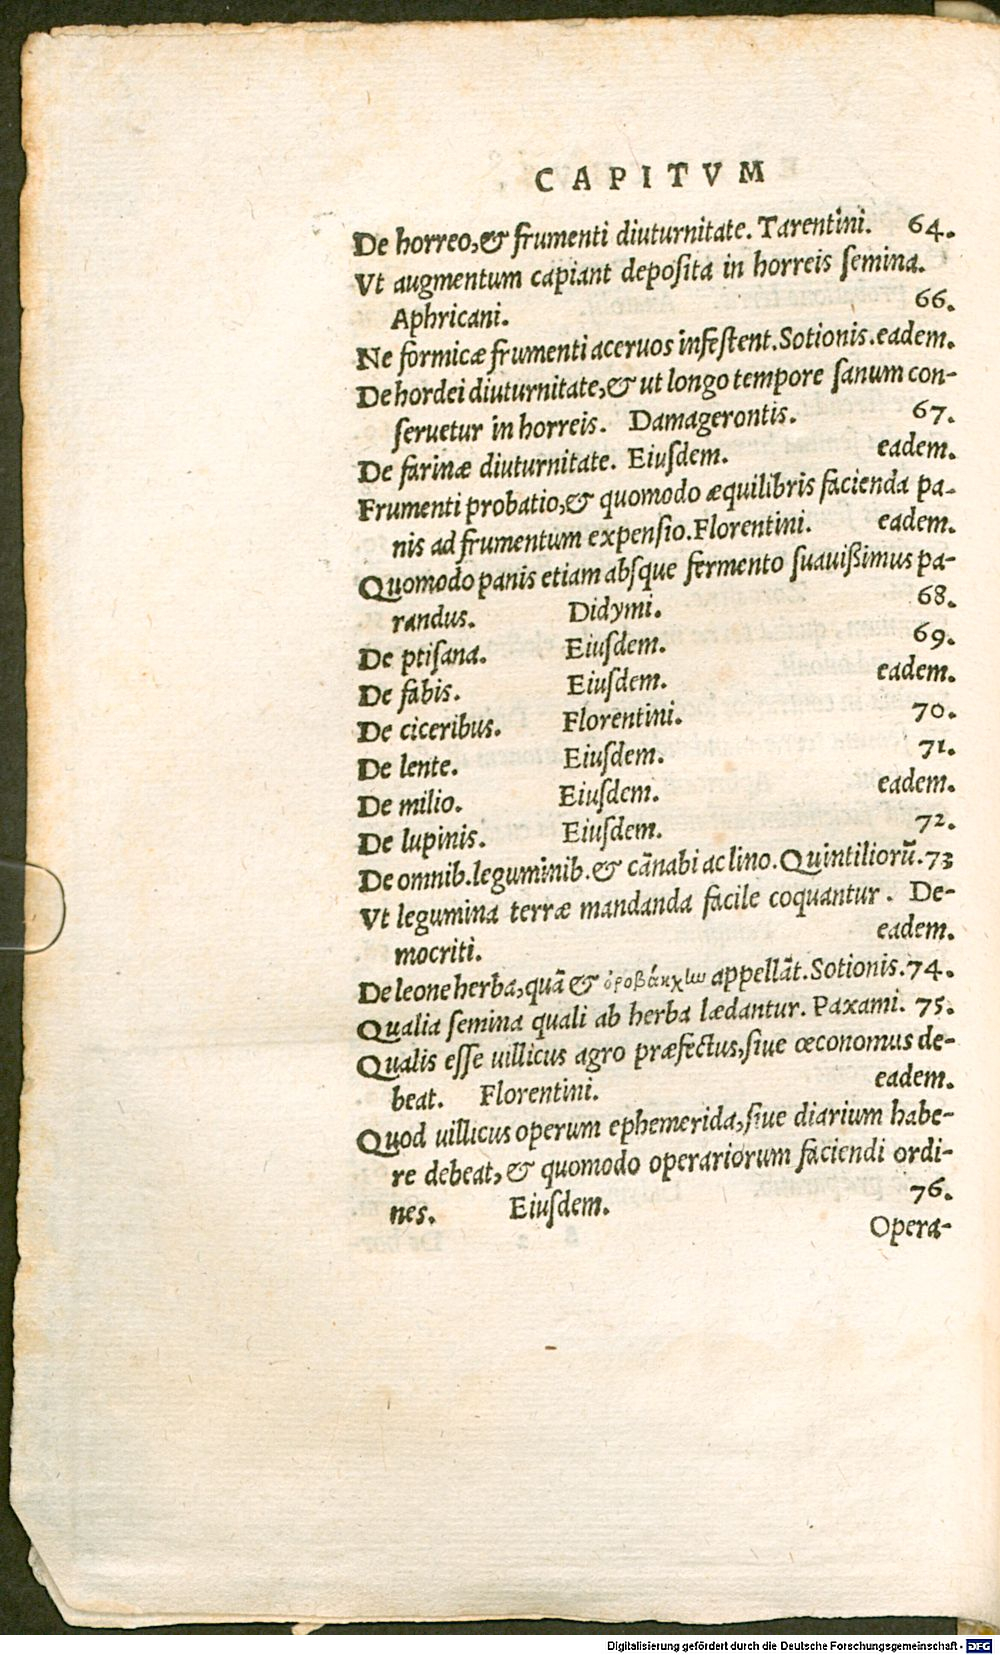 CAPITVM
De horreo, & frumenti diuturnitate. Tarentini. 64.
Vt augmentum capiant deposita in horreis semina.
Aphricani. 66.
Ne formicæ frumenti aceruos infestent. Sotionis. eadem.
De hordei diuturnitate, & ut longo tempore sanum con-
seruetur in horreis. Damagerontis. 67.
De farinæ diuturnitate. Eiusdem. eadem.
Frumenti probatio, & quomodo æquilibris facienda pa-
nis ad frumentum expensio. Florentini. eadem.
Quomodo panis etiam absque fermento suauißimus pa-
randus. Didymi. 68.
De ptisana. Eiusdem. 69.
De fabis. Eiusdem. eadem.
De ciceribus. Florentini. 70.
De lente. Eiusdem. 71.
De milio. Eiusdem. eadem.
De lupinis. Eiusdem. 72.
De omnib. leguminib. & cānabi ac lino. Quintiliorū. 73
Vt legumina terræ mandanda facile coquantur. De-
mocriti. eadem.
De leone herba, quā & ὀροβάκχω appellāt. Sotionis. 74.
Qualia semina quali ab herba lædantur. Paxami. 75.
Qualis esse uillicus agro præfectus, siue œconomus de-
beat. Florentini. eadem.
Quod uillicus operum ephemerida, siue diarium habe-
re debeat, & quomodo operariorum faciendi ordi-
nes. Eiusdem. 76.
Opera-
Digitalisierung gefördert durch die Deutsche Forschungsgemeinschaft - DFG